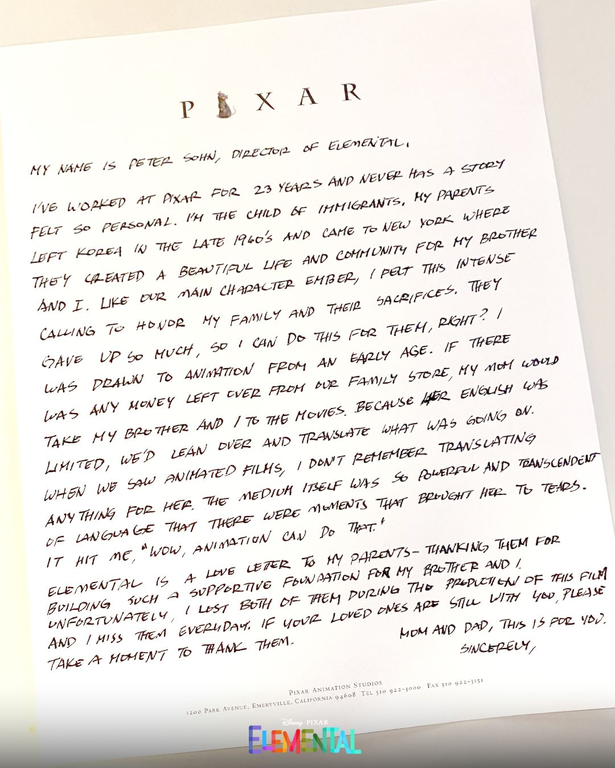 PIXAR
MY NAME IS PETER SOHN, DIRECTOR OF ELEMENTAL.
I'VE WORKED AT PIXAR FOR 23 YEARS AND NEVER HAS A STORY
FELT SO PERSONAL. I'M THE CHILD OF IMMIGRANTS. MY PARENTS
LEFT KOREA IN THE LATE 1960'S AND CAME TO NEW YORK WHERE
THEY CREATED A BEAUTIFUL LIFE AND COMMUNITY FOR MY BROTHER
AND I. LIKE OUR MAIN CHARACTER EMBER, I FELT THIS INTENSE
CALLING TO HONOR MY FAMILY AND THEIR SACRIFICES. THEY
GAVE UP SO MUCH, SO I CAN DO THIS FOR THEM, RIGHT? I
WAS DRAWN TO ANIMATION FROM AN EARLY AGE. IF THERE
WAS ANY MONEY LEFT OVER FROM OUR FAMILY STORE, MY MOM WOULD
TAKE MY BROTHER AND I TO THE MOVIES. BECAUSE HER ENGLISH WAS
LIMITED, WE'D LEAN OVER AND TRANSLATE WHAT WAS GOING ON.
WHEN WE SAW ANIMATED FILMS, I DON'T REMEMBER TRANSLATING
ANYTHING FOR HER. THE MEDIUM ITSELF WAS SO POWERFUL AND TRANSCENDENT
OF LANGUAGE THAT THERE WERE MOMENTS THAT BROUGHT HER TO TEARS.
IT HIT ME, "WOW, ANIMATION CAN DO THAT."
ELEMENTAL IS A LOVE LETTER TO MY PARENTS - THANKING THEM FOR
BUILDING SUCH A SUPPORTIVE FOUNDATION FOR MY BROTHER AND I.
UNFORTUNATELY, I LOST BOTH OF THEM DURING THE PRODUCTION OF THIS FILM
AND I MISS THEM EVERYDAY. IF YOUR LOVED ONES ARE STILL WITH YOU, PLEASE
TAKE A MOMENT TO THANK THEM.
MOM AND DAD, THIS IS FOR YOU.
SINCERELY,
PIXAR ANIMATION STUDIOS
1200 PARK AVENUE, EMERYVILLE, CALIFORNIA 94608 TEL 510 922-3000 FAX 510 922-3151
Disney PIXAR
ELEMENTAL